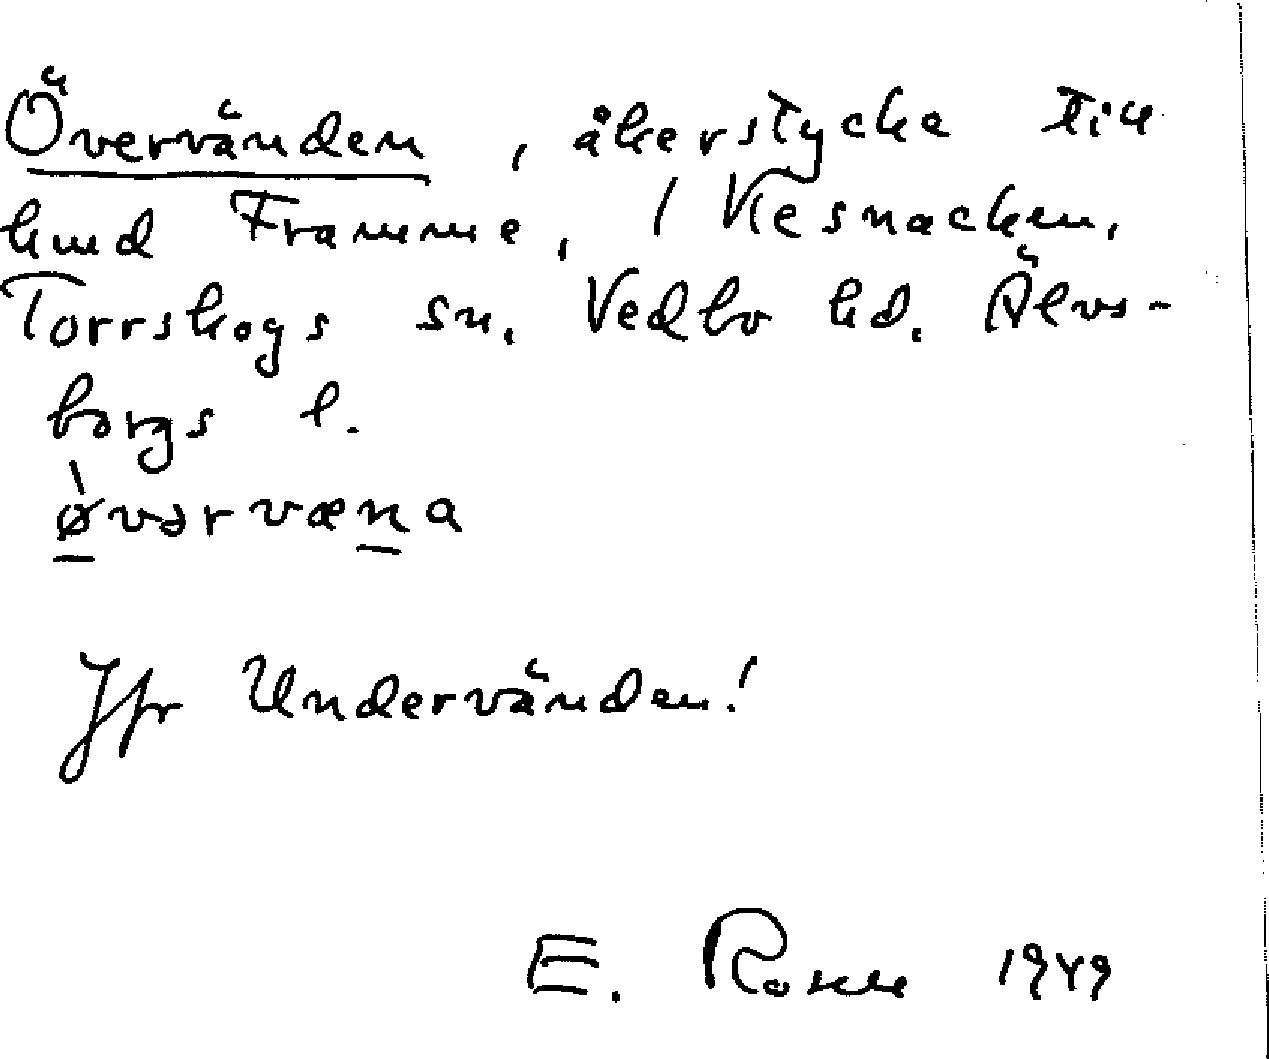 Övervänden, åkerstycke till
hmd Framme, i Klesnacken,
Torrskogs sn. Vedbo hd. Älvs-
borgs l.
ø̀vərvæna
Jfr Undervänden!
E. Rosell 1949